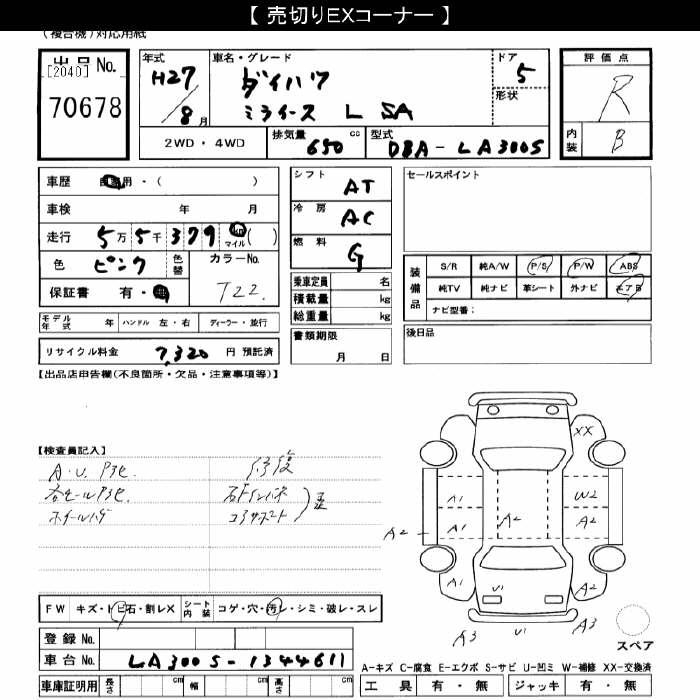 【 売切りEXコーナー 】
(複合機)対応用紙
出品 No.
[2040]
70678
年式
H27
/8月
車名・グレード
ダイハツ
ミライース L SA
ドア
5
形状
評価点
R
内装
B
2WD・4WD
排気量 650 cc
型式 DBA-LA300S
車歴 自家用・( )
車検 年 月
走行 5万5千379 km マイル ( )
色 ピンク 色替
カラーNo.
T22.
保証書 有・無
モデル年式 年 ハンドル 左・右 ディーラー・並行
リサイクル料金 7,320 円 預託済
シフト AT
冷房 AC
燃料 G
乗車定員 名
積載量 kg
総重量 kg
書類期限
月 日
セールスポイント
装備品
S/R 純A/W P/S P/W ABS
純TV 純ナビ 革シート 外ナビ エアB
ナビ型番:
後日品
【出品店申告欄(不良箇所・欠品・注意事項等)】
【検査員記入】
修復
ホイールハゲ
コアサポート
歪
FW キズ・トビ石・割レX
シート内装 コゲ・穴・汚レ・シミ・破レ・スレ
登録 No.
車台 No. LA300S-1344611
車庫証明用 長さ cm 幅 cm 高さ cm
XX
A1 W2
A2 A1 A2 A2
A1 U1 A2
A3 U1 A3
スペア
A-キズ C-腐食 E-エクボ S-サビ U-凹ミ W-補修 XX-交換済
工具 有・無 ジャッキ 有・無